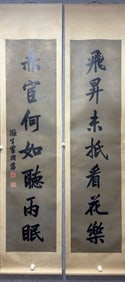 飛昇未抵看花樂
赤宦何如聽雨眠